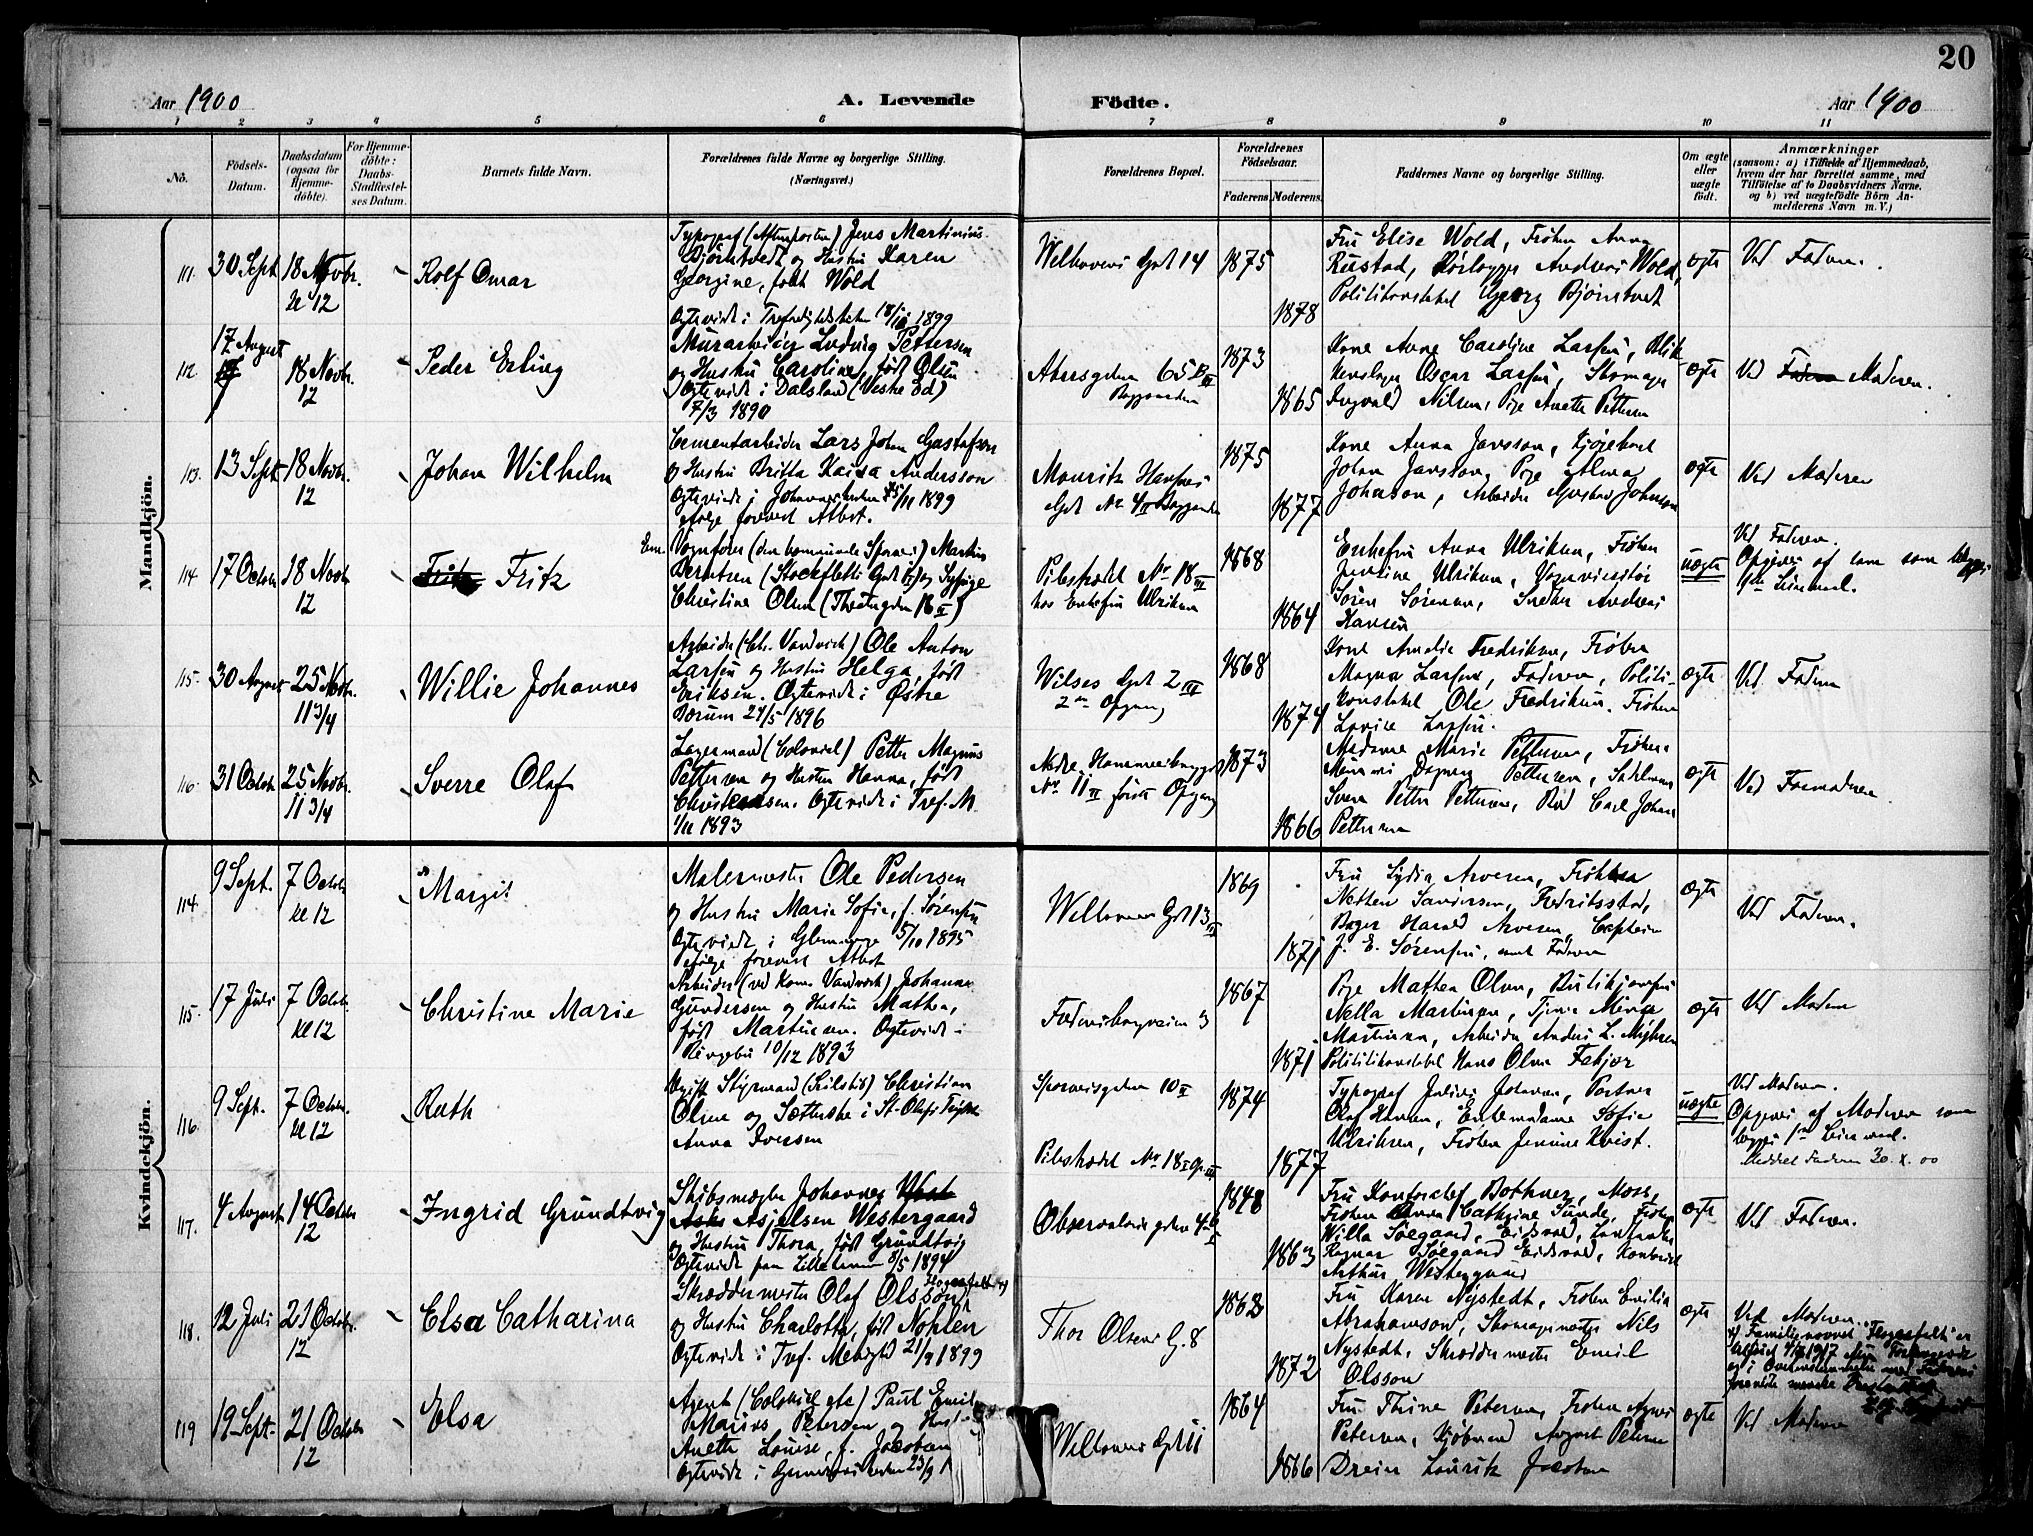 20
Aar 1900
A. Levende
Födte.
Aar 1900
1 2 3 4 5 6 7 8 9 10 11
No.
Födsels-Datum.
Daabsdatum (ogsaa for Hjemmedöbte).
For Hjemmedöbte: Daabs-Stadfæstelses Datum.
Barnets fulde Navn.
Forældrenes fulde Navne og borgerlige Stilling.
(Næringsvei.)
Forældrenes Bopæl.
Forældrenes Födselsaar.
Faderens Moderens.
Faddernes Navne og borgerlige Stilling.
Om ægte eller uægte födt.
Anmærkninger
(saasom: a) i Tilfælde af Hjemmedaab,
hvem der har forrettet samme, med
Tilföielse af to Daabsvidners Navne.
og b) ved uægtefödte Börn An-
melderens Navn m. V.)
Mandkjön.
111. 30 Sept 18 Novbr. kl 12
Rolf Omar
Typograf (Aftenposten) Jens Martinius
Bjørntvedt og Hustru Karen
Georgine, født Wold
Ægteviede i Trefoldighedskirken 1899
Welhavens Gade 14
1875
1878
Fru Elise Wold, Frøken Anna
Rustad, Andreas Wold,
Politikonstabel Georg Bjørntvedt
ægte
Ved Faderen.
112. 17 August 18 Novbr. 12
Peder Erling
Murarbeider Ludvig Pettersen
og Hustru Caroline, født Olsen
Ægteviede i Dalsland (Vestre Ed)
7/3 1890
Akersgaden 65
Baggaarden
1873
1865
Kone Anne Caroline Larsen, Blik-
kenslager Oscar Larsen, Skomager
Ingvald Nilsen, Pige Anette Pettersen
ægte
Ved Moderen.
113. 13 Sept 18 Novbr. 12
Johan Wilhelm
Cementarbeider Lars Johan Gustafson
og Hustru Britta Kaisa Andersson
Ægteviede i Johanneskirken 1899
ifølge forevist Attest.
Mouritz Hansens
Gade No 4 II Baggaarden
1875
1877
Kone Anna Jansson,
Johan Jansson, Pige Alma
Johnson, Arbeider Gustav Johnson
ægte
Ved Moderen
114. 17 Octobr 18 Novbr 12
Fritz
Enk. Vognfører (den kommunale Sporvei) Martin
Berntsen (Stockfleths Gade) og Sypige
Christine Olsen (Theatergaden 16 II)
Pilestrædet No 18 III
hos Enkefru Ulriksen
1868
1864
Enkefru Anna Ulriksen, Frøken
Jensine Ulriksen, Vognvisitør
Søren Sørensen, Snedker Andreas
Hansen
uægte
Ved Faderen.
Opgives af ham som begges
1ste Leiermaal.
115. 30 August 25 Novbr. 11 3/4
Willie Johannes
Arbeider (Chr. Vandværk) Ole Anton
Larsen og Hustru Helga, født
Eriksen. Ægteviede i Østre
Bærum 24/5 1896
Wilses Gade 2 III
2den Opgang
1868
1874
Kone Amalie Fredriksen, Frøken
Magna Larsen, Faderen, Politi-
konstabel Ole Fredriksen. Frøken
Lovise Larsen.
ægte
Ved Faderen
116. 31 Octobr 25 Novbr. 11 3/4
Sverre Olaf
Lagermand (Colonial) Petter Magnus
Pettersen og Hustru Hanna, født
Christensen. Ægteviede i Tref. M.
1/11 1893
Nedre Hammersborggade
No 11 II første Opgang
1873
1866
Madame Marie Pettersen, Frøken
Dagny Pettersen,
Petter Pettersen, Carl Johan
Pettersen
ægte
Ved Formoderen
Kvindekjön.
114. 9 Sept. 7 Octobr kl 12
Margit
Malermester Ole Pedersen
og Hustru Marie Sofie, f. Sørensen
Ægteviede i Glemminge 5/10 1895
ifølge forevist Attest
Welhavens Gade 13 II
1869
1871
Fru Lydia Arvesen, Frøken
Nathea Sandersen, Fredriksstad,
Bager Harald Arvesen, Captein
J. E. Sørensen, samt Faderen
ægte
Ved Faderen.
115. 17 Juli 7 Octobr. kl 12
Christine Marie
Arbeider (ved Kom. Vandværk) Johannes
Gundersen og Hustru Mathea,
født Martinsen. Ægteviede i
Ringebu 10/12 1893
Fredensborgveien 3
1867
1871
Pige Mathea Olsen,
Nella Martinsen, Tjener Minda
Martinsen, Arbeider Anders L. Myhren
Politikonstabel Hans Olsen
ægte
Ved Moderen
116. 9 Sept. 7 Octobr. kl 12
Ruth
Ugift Styrmand (Seilskib) Christian
Olsen og Sætterske i St. Olafs Trykkeri
Anna Iversen
Sporveisgaden 10 II
Pilestrædet No 18 I Opg. III
1874
1877
Typograf Julius Johansen, Portner
Olaf Hansen, Enkemadame Sofie
Ulriksen, Frøken Jensine Kvist.
uægte
Ved Moderen.
Opgives af Moderen som
begges 1ste Leiermaal.
Meddelt Faderen 30. X. 00
117. 4 August 14 Octobr 12
Ingrid Grundtvig
Skibsmægler Johannes
Asjelsen Westergaard
og Hustru Thora, født Grundtvig
Ægteviede paa Lillehammer 8/5 1894
Observatoriegaden 4
1848
1863
Fru Kontorchef Bothner, Moss,
Frøken Cathrine Sunde, Frøken
Willa Søegaard, Eidsvold,
Ragnar Søegaard Eidsvold, Kontorist
Arthur Westergaard
ægte
Ved Faderen.
118. 12 Juli 21 Octobr. 12
Elsa Catharina
Skræddermester Olaf Olsson
og Hustru Charlotta, født Nohlen
Ægteviede i Tref. Menighed 21/9 1899
Thor Olsens G. 8
1862
1872
Fru Karen Nystedt, Frøken Emilia
Abrahamson, Skomagermester Nils
Nystedt, Skræddermester Emil
Olsson
ægte
Ved Moderen.
119 19 Sept. 21 Octobr 12
Elsa
Agent (Colonial etc) Paul Emil
Marius Petersen og Hustru
Anette Louise, f. Jacobsen
Welhavens Gade 11
1864
1866
Fru Thrine Petersen, Frøken Agnes
Petersen, Kjøbmand August Petersen
Laurits Jacobsen
ægte
Ved Moderen